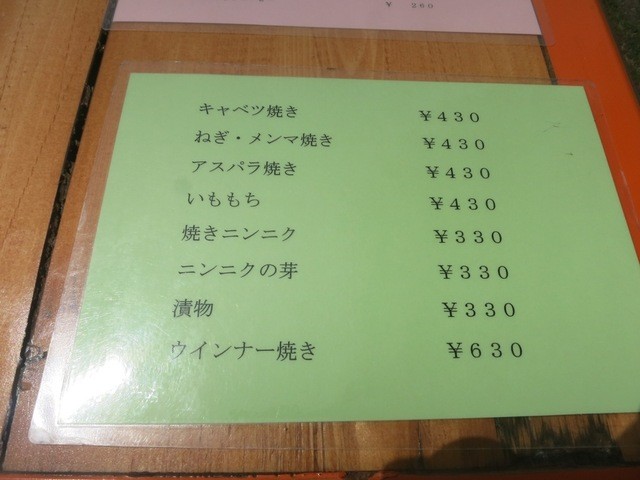 ￥ 260
キャベツ焼き ￥４３０
ねぎ・メンマ焼き ￥４３０
アスパラ焼き ￥４３０
いももち ￥４３０
焼きニンニク ￥３３０
ニンニクの芽 ￥３３０
漬物 ￥３３０
ウインナー焼き ￥６３０